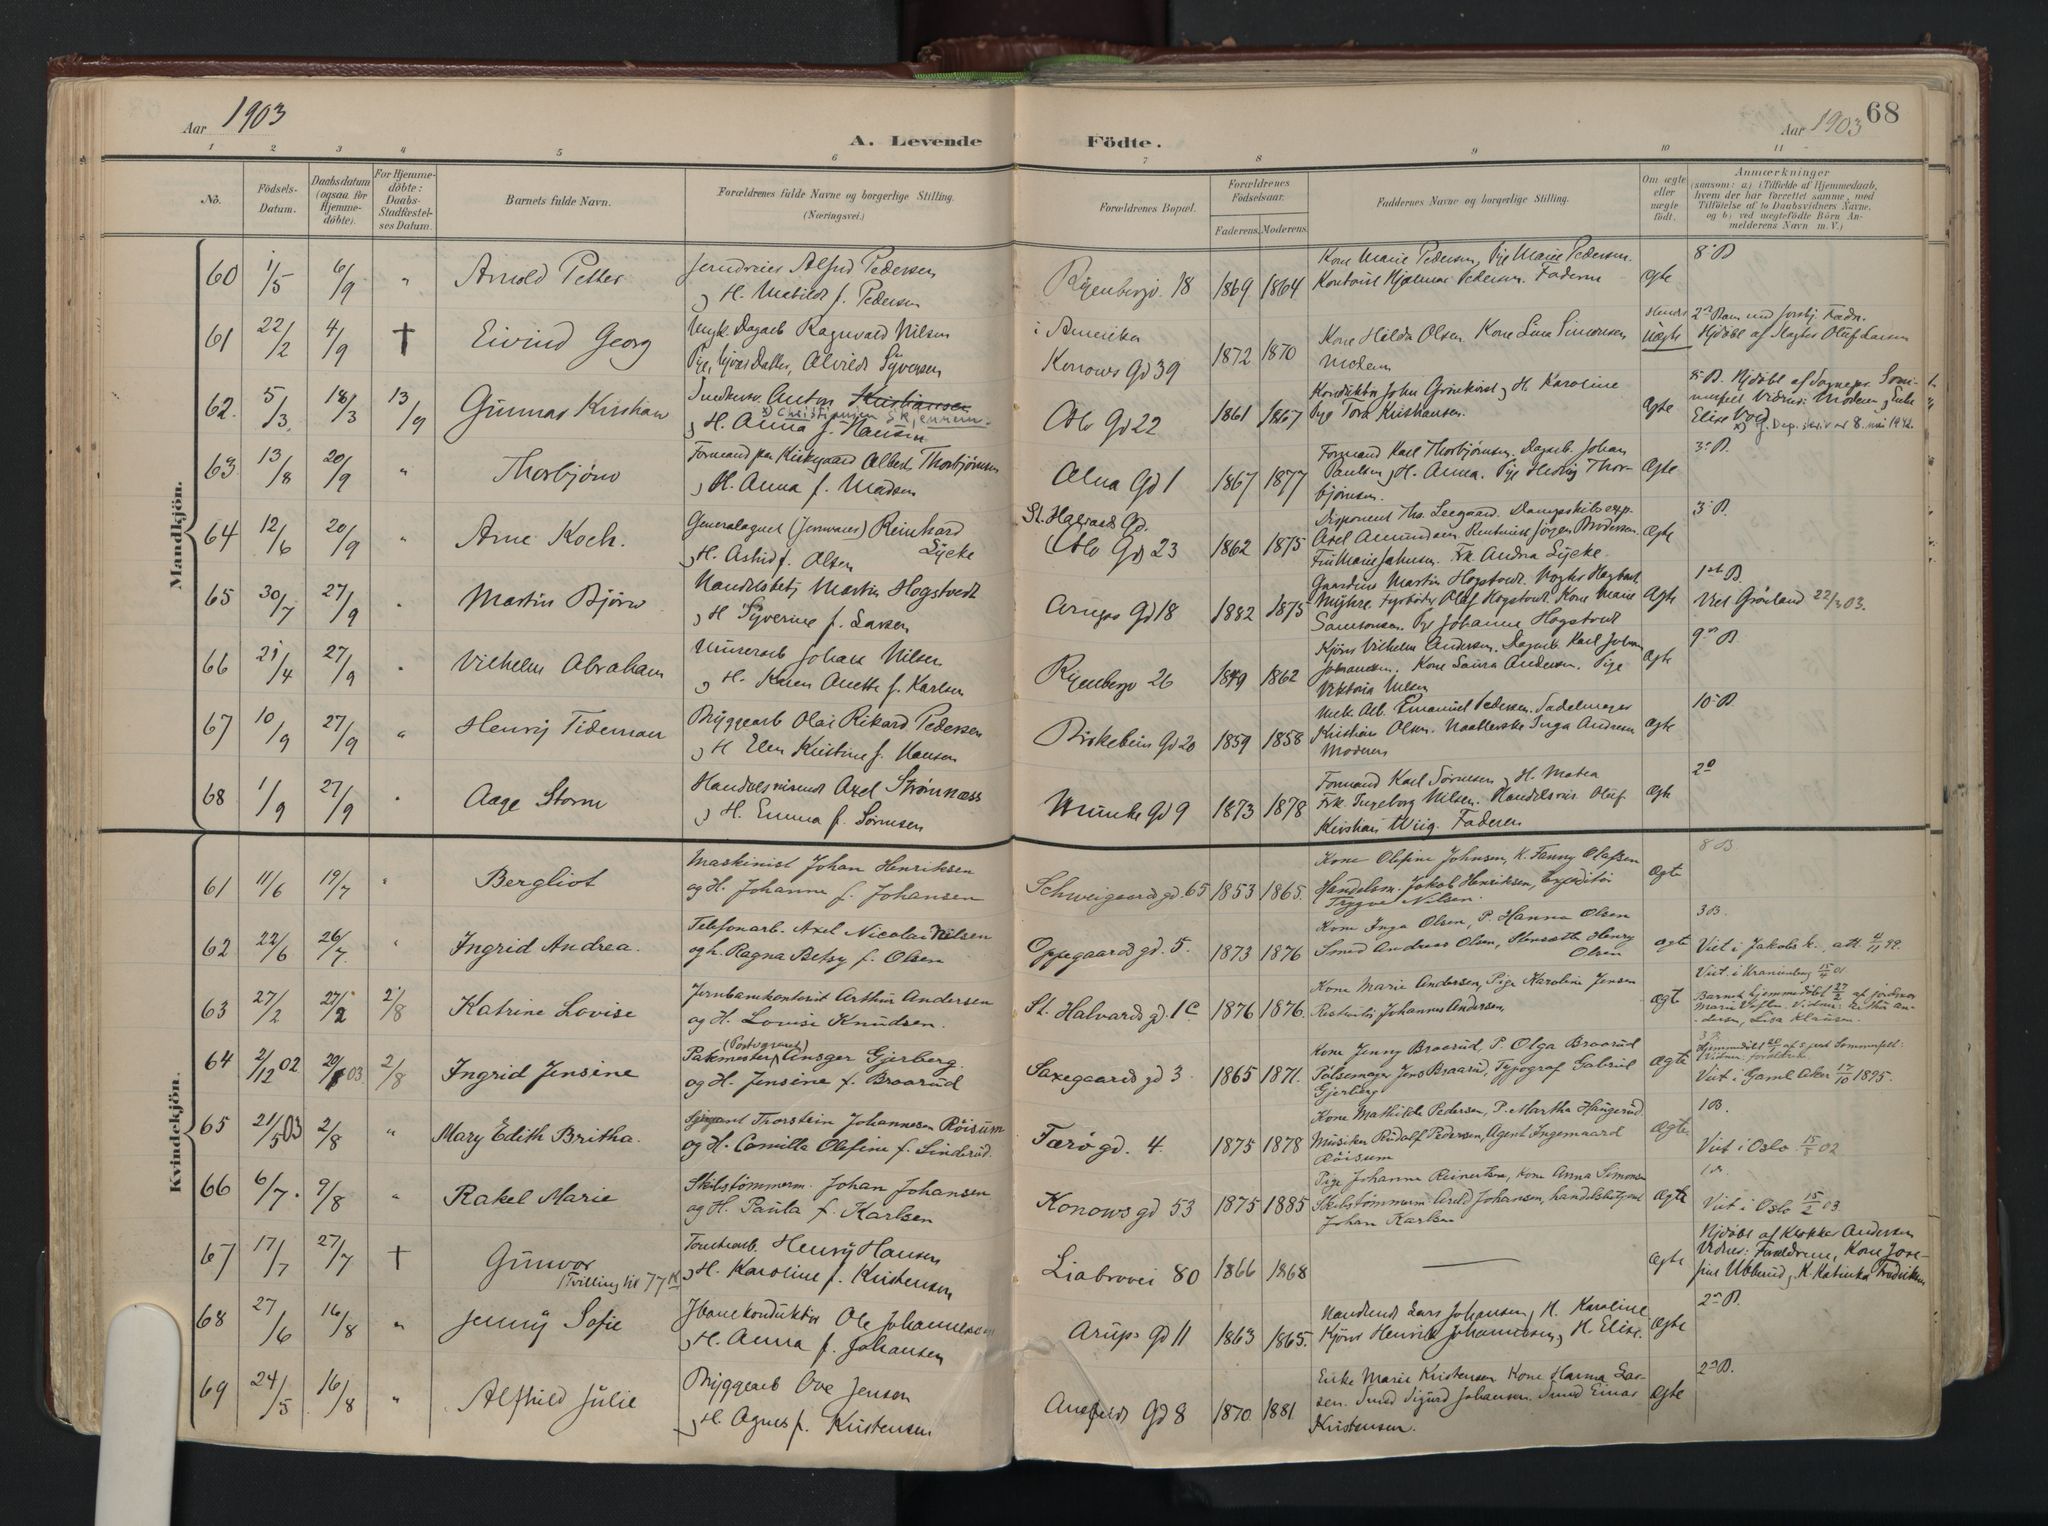 Aar 1903
A. Levende
Födte.
Aar 1903
68
1 2 3 4 5 6 7 8 9 10 11
No.
Födsels-Datum.
Daabsdatum (ogsaa for Hjemme-döbte).
For Hjemme-döbte: Daabs-Stadfæstel-ses Datum.
Barnets fulde Navn.
Forældrenes fulde Navne og borgerlige Stilling. (Næringsvei.)
Forældrenes Bopæl.
Forældrenes Födselsaar.
Faderens. Moderens.
Faddernes Navne og borgerlige Stilling.
Om ægte eller uægte födt.
Anmærkninger
(saasom: a) i Tilfælde af Hjemmedaab,
hvem der har forrettet samme, med
Tilföielse af to Daabsvidners Navne,
og b) ved uægtefödte Börn An-
melderens Navn m. V.)
Mandkjön.
60 1/5 6/9 " Arnold Petter
Alfred Pedersen
og H. Matilde f. Pedersen
Ryenbergv. 18 1869 1864
Kone Marie Pedersen, Pige Marie Pedersen
Kontorist Hjalmar Pedersen. Faderne
ægte
8 B
61 22/2 4/9 † Eivind Georg
Ungk. Dagarb Ragnvald Nilsen
Pige, Alvilde Syversen
i Amerika
Konows Gd 39 1872 1870
Kone Hilda Olsen. Kone Lina Simonsen
Moderen
uægte
Hjdöbt af Oluf Larsen
62. 5/3. 18/3 13/9 Gunnar Kristian
Anton Kristiansen
x) Christiansen
og H. Anna f. Hansen
Oslo Gd 22 1861 1867
Konduktør John Grönkvist og H. Karoline
Pige Tora Kristiansen.
ægte
8 B. Hjdöbt af Sognepr. Som-
merfelt Vidner: Moderen og
Elise Vold
63 13/8 20/9 " Thorbjörn
Formand paa Kirkgaard Albert Thorbjörnsen
og H. Anna f. Madsen
Alna Gd 1 1867 1877
Formand Karl Thorbjörnsen. Dagarb. Johan
Paulsen og H. Anna. Pige Hedvig Thor-
björnsen.
ægte
3 B.
64 12/6 20/9 " Arne Koch.
Generalagent (Jernvarer) Reinhard
Lycke
og H. Astrid f. Olsen
St. Halvards Gd.
Oslo Gd 23 1862 1875
Disponent Ths. Leegaard. Dampskibsexp.
Axel Amundsen. Rentenist Jörgen Brodersen
Fru Marie Jahnsen. Frk. Andrea Lycke.
ægte
3 B.
65 30/7 27/9 " Martin Björn
Handelsbetj Martin Hogstvedt
og H Syverine f. Larsen
Arups Gd 18 1882 1875
Martin Hogstvedt.
Myhre. Fyrböder Olaf Hogstvedt. Kone Marie
Samsonsen. Pige Johanne Hogstvedt
Ægte
1ste B.
Viet Grönland 22/3 03.
66 21/4 27/9 " Vilhelm Abraham
Murerarb Johan Nilsen
og H. Karen Anette f. Karlsen
Ryenbergv 26 1849 1862
Kjörer Vilhelm Andersen. Dagarb. Karl Johan
Johansen. Kone Laura Andersen. Pige
Viktoria Nilsen
Ægte
9 B.
67 10/9 27/9 " Henry Tideman
Bryggearb Olai Rikard Pedersen
og H Elen Kristine f. Hansen
Birkebein Gd 20 1859 1858
Mek. Arb. Emanuel Pedersen. Sadelmager
Kristian Olsen. Inga Andresen
Moderen
ægte
10 B.
68 1/9 27/9 " Aage Storm
Handelsreisende Axel Strömnæss
og H. Emma f. Sörensen
Munke Gd 9 1873 1878
Formand Karl Sörensen og H. Matea
Frk. Ingeborg Nilsen. Handelsreis Oluf
Kristian Wiig. Faderen
ægte
2 B
Kvindekjön.
61 11/6 19/7 " Bergliot
Maskinist Johan Henriksen
og H. Johanne f. Johansen
Schweigaards gd. 65 1853 1865.
Kone Olefine Johnsen, K. Fanny Olafsen
Handelsm. Jakob Henriksen, Expeditör
Trygve Nilsen.
ægte
8 B.
62 22/6 26/7 " Ingrid Andrea.
Telefonarb. Axel Nicolai Nilsen
og h. Ragna Betsy f. Olsen
Oppegaards gd. 5. 1873 1876
Kone Inga Olsen, P. Hanna Olsen
Smed Andreas Olsen, Henry
Olsen
ægte
3 B.
Viet i Jakobs k. 4/11 99.
63 27/2 27/2 2/8 Katrine Lovise
Jernbanekontorist Arthur Andersen
og H. Lovise Knudsen.
St. Halvards gd. 1c 1876 1876.
Kone Marie Andersen, Pige Karoline Jensen
Johannes Andersen,
ægte
Viet i Kraniberg 15/4 01.
Barnet hjemmedöbt 27/2 af jordmor
Marie Vidner: Arthur An-
dersen, Lisa Klausen.
64 2/12 02 20/1 03 2/8 Ingrid Jensine
Pakmester (Postvæsenet) Ansger Gjerberg.
og H. Jensine f. Braarud
Saxegaards gd 3. 1865 1871.
Kone Jenny Braarud, P. Olga Braarud
Pölsemager Jens Braarud, Typograf Gabriel
Gjerberg
ægte
3 P.
Hjemmedöbt 20/1 af Sommerfelt:
Vidner: forældrene.
Viet i Gaml. Aker 17/10 1895.
65 21/5 03 2/8 " Mary Edith Britha.
Sergeant Thorstein Johannesen Röisum
og H. Camilla Olefine f. Linderud.
Færö gd. 4. 1875 1878
Kone Mathilde Pedersen, P. Martha Haugerud.
Musiker Rudolf Pedersen, Agent Ingemaard
Röisum
ægte
1 B.
Viet i Oslo 15/5 02
66 6/7. 9/8 " Rakel Marie
Skibstömmerm. Johan Johansen
og H. Paula f. Karlsen
Konows gd 53 1875 1885
Pige Johanne Reinertsen, Kone Anna Simonsen
Skibstömmerm. Johansen, handelsbetjent
Johan Karlsen
ægte
1 B.
Viet i Oslo 15/2 03.
67 17/7 27/7 † Gunvor
(Tvilling til 77 K)
Henry Hansen
og H. Karoline f. Kristensen
Liabrovei 80 1866 1868
ægte
Hjdöbt af Klokker Andersen
Vidner: Forældrene, Kone Jose-
fine og K. Katinka Fredriksen
68 27/6 16/8 " Jenny Sofie
Jbanekonduktör Ole Johannesen
og H. Anna f. Johansen
Arups Gd 11 1863 1865.
Lars Johansen og H. Karoline
Kjörer Henrik Johannesen og H. Elise.
ægte
2 B.
69 24/5 16/8 " Alfhild Julie
Bryggearb Ove Jensen
og H. Agnes f. Kristensen
Gd 8 1870 1881
Enke Marie Kristensen Kone Hanna Lar-
sen. Smed Sigurd Johansen. Smed Einar
Kristensen.
ægte
2 B.